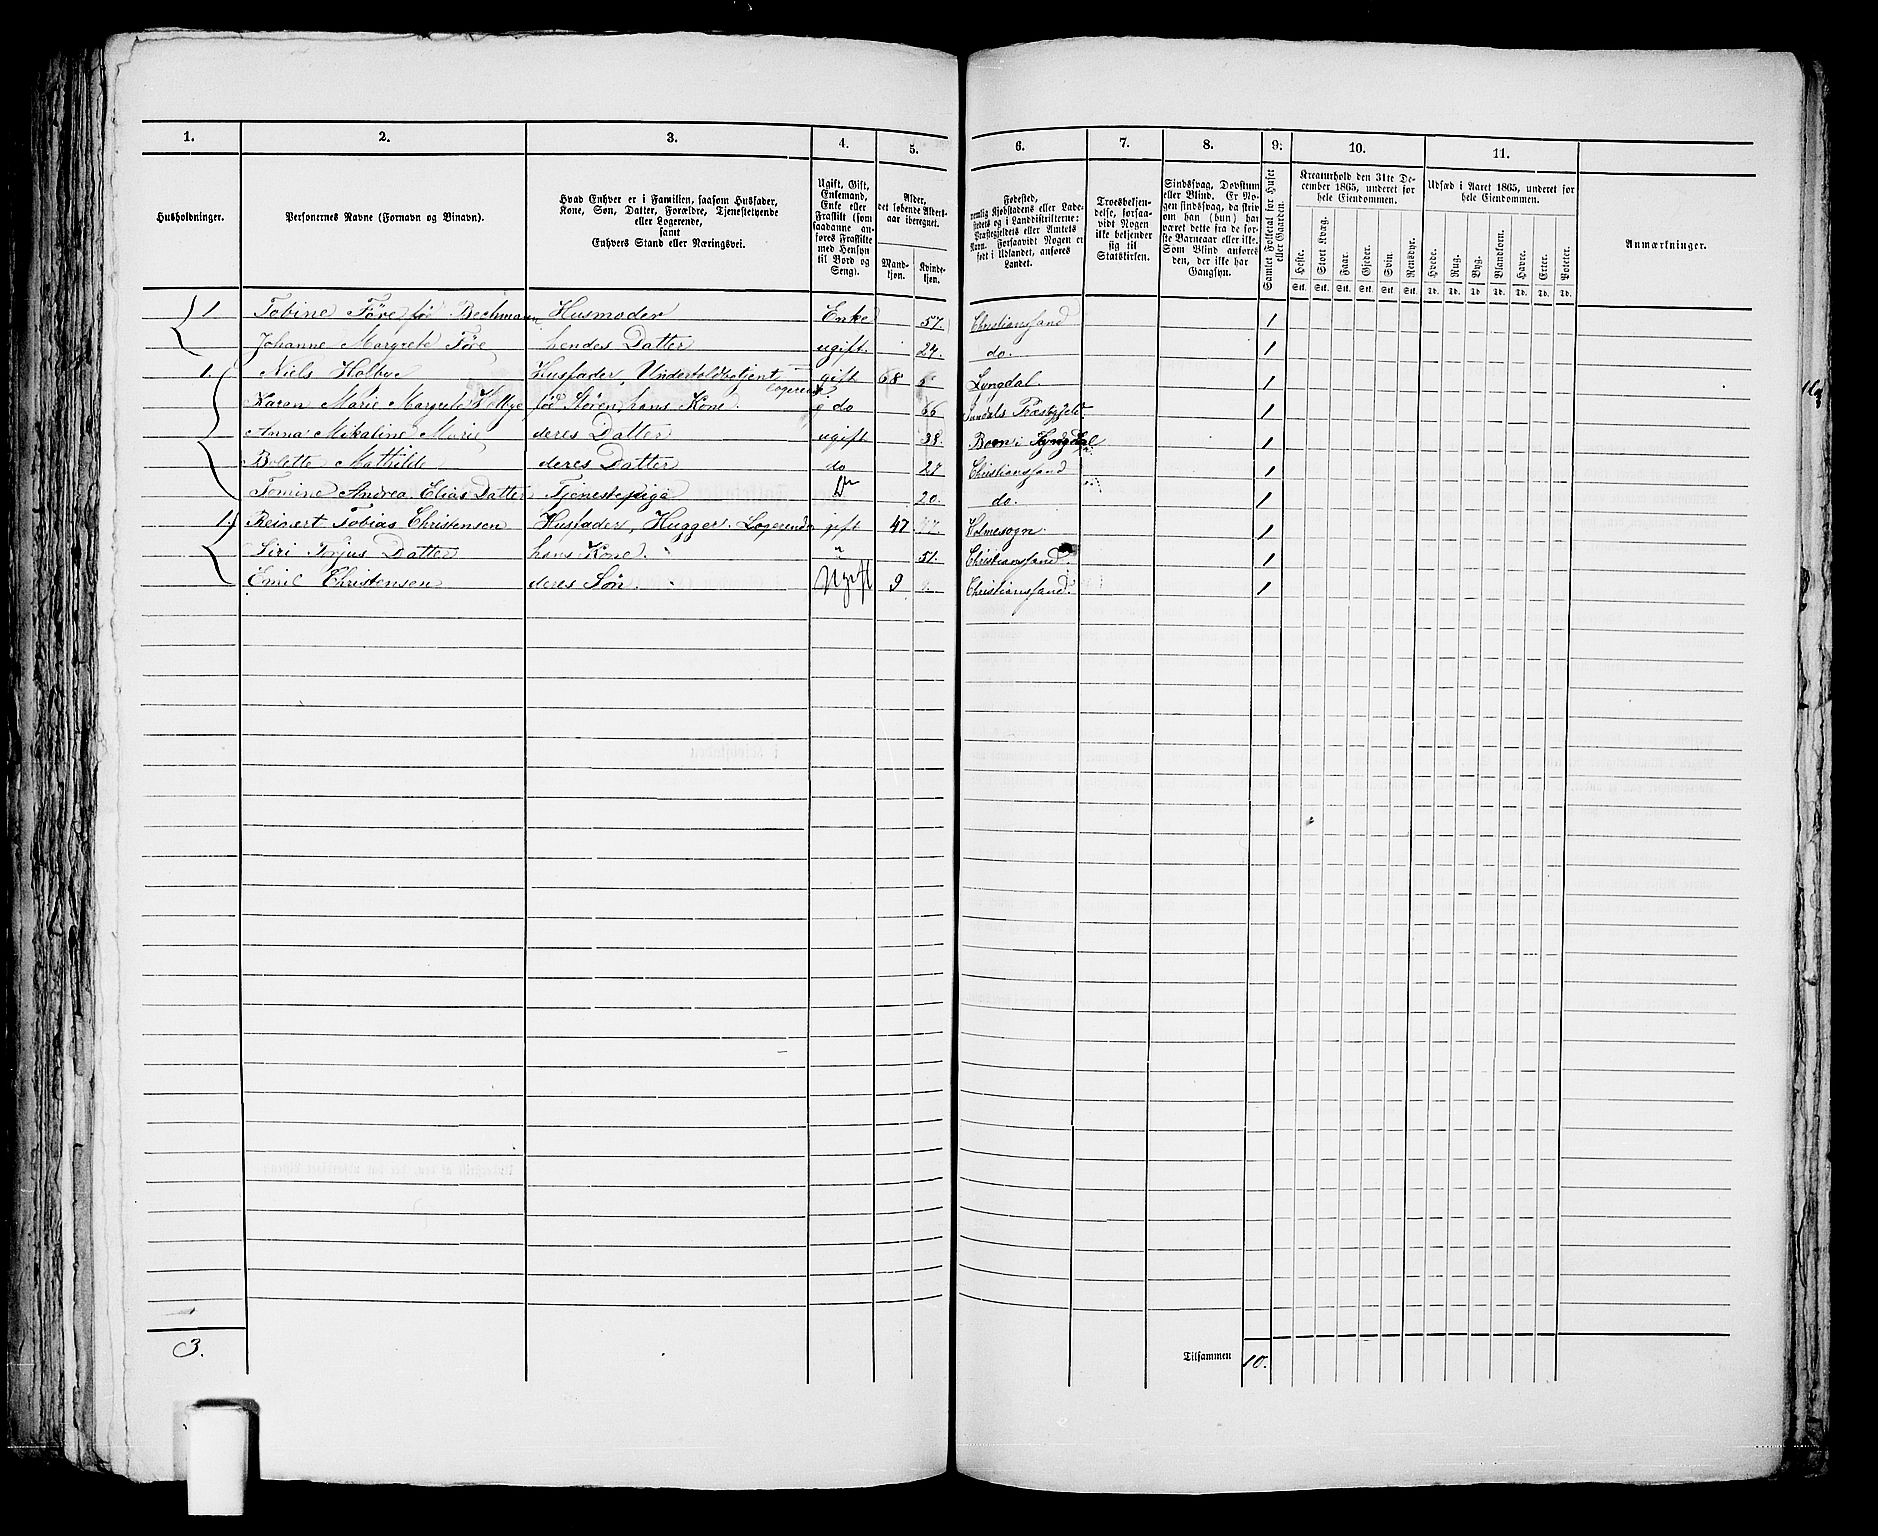 1. 2. 3. 4. 5. 6. 7. 8. 9. 10. 11.
Husholdninger.
Personernes Navne (Fornavn og Binavn).
Hvad Enhver er i Familien, saasom Husfader, Kone, Søn, Datter, Forældre, Tjenestetyende eller Logerende, samt Enhvers Stand eller Næringsvei.
Ugift, Gift, Enkemand, Enke eller Fraskilt (som saadanne anføres Fraskilte med Hensyn til Bord og Seng).
Alder, det løbende Aldersaar iberegnet.
Mandkjøn. Kvindekjøn.
Fødested, nemlig Kjøbstadens eller Ladestedets og i Landdistrikterne: Præstegjeldets eller Amtets Navn. Forsaavidt Nogen er født i Udlandet, anføres Landet.
Troesbekjendelse, forsaavidt Nogen ikke bekjender sig til Statskirken.
Sindssvag, Døvstum eller Blind. Er Nogen sindssvag, da skrives om han (hun) har været dette fra de første Barneaar eller ikke. Som Blind anføres den, der ikke har Gangsyn.
Samlet Folketal for Huset eller Gaarden.
Kreaturhold den 31te December 1865, underet for hele Eiendommen.
Heste. Stort Kvæg. Faar. Gjeder. Svin. Rensdyr.
Stk. Stk. Stk. Stk. Stk. Stk.
Udsæd i Aaret 1865, underet for hele Eiendommen.
Hvede. Rug. Byg. Blandkorn. Havre. Erter. Poteter.
Td. Td. Td. Td. Td. Td. Td.
Anmærkninger.
1 Tobine Töre föd Bechmann Husmoder Enke 57. Christiansand 1
Johanne Margrete Töre hendes Datter ugift. 24. do. 1
1. Niels Holbye Husfader, Undertoldbetjent Logerende gift 68 Lyngdal. 1
Karen Marie Margrete Holbye föd Støren, hans Kone. do 66 Sundals Præstegjeld 1
Anna Mikaline Marie deres Datter ugift 38. Lyngdal 1
Bolette Mathilde deres Datter do 27 Christiansand 1
Tomine Andrea Elias Datter Tjenestepige Do 20. do. 1
1. Reinert Tobias Christensen Husfader, Hugger. Logerende gift 47 Holmesogn 1
Siri Torjus Datter hans Kone. " 51. Christiansand. 1
Emil Christensen deres Søn. Ugift 9 Christiansand. 1
3.
Tilsammen 10.